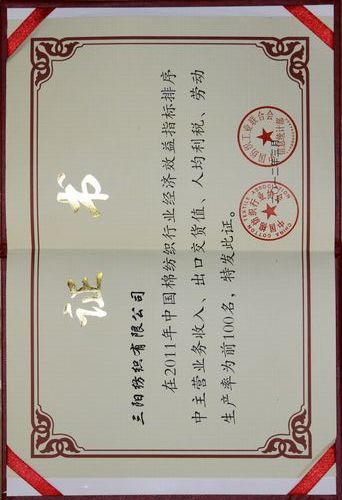 证书
三阳纺织有限公司
在2011年中国棉纺织行业经济效益指标排序
中主营业务收入、出口交货值、人均利税、劳动
生产率为前100名，特发此证。
中国棉纺织行业协会
CHINA COTTON TEXTILE ASSOCIATION
中国纺织工业联合会